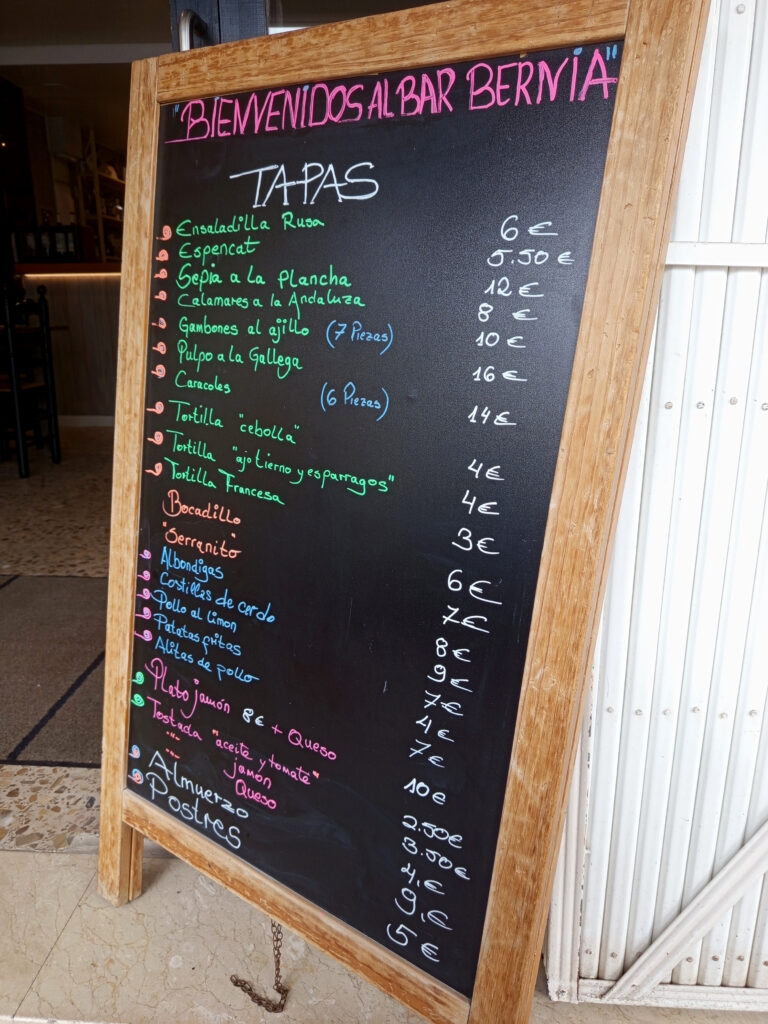 "BIENVENIDOS AL BAR BERNIA"
TAPAS
Ensaladilla Rusa 6 €
Espencat 5.50 €
Sepia a la Plancha 12 €
Calamares a la Andaluza 8 €
Gambones al ajillo (7 Piezas) 10 €
Pulpo a la Gallega 16 €
Caracoles (6 Piezas) 14 €
Tortilla "cebolla" 4 €
Tortilla "ajo tierno y esparragos" 4 €
Tortilla Francesa 3 €
Bocadillo 6 €
"Serranito" 7 €
Albondigas 8 €
Costillas de cerdo 9 €
Pollo al limon 7 €
Patatas fritas 4 €
Alitas de pollo 7 €
Plato jamón 8 € + Queso 10 €
Tostada "aceite y tomate" 2.50 €
"-" jamón 3.50 €
"-" Queso 4. €
Almuerzo 9. €
Postres 5 €